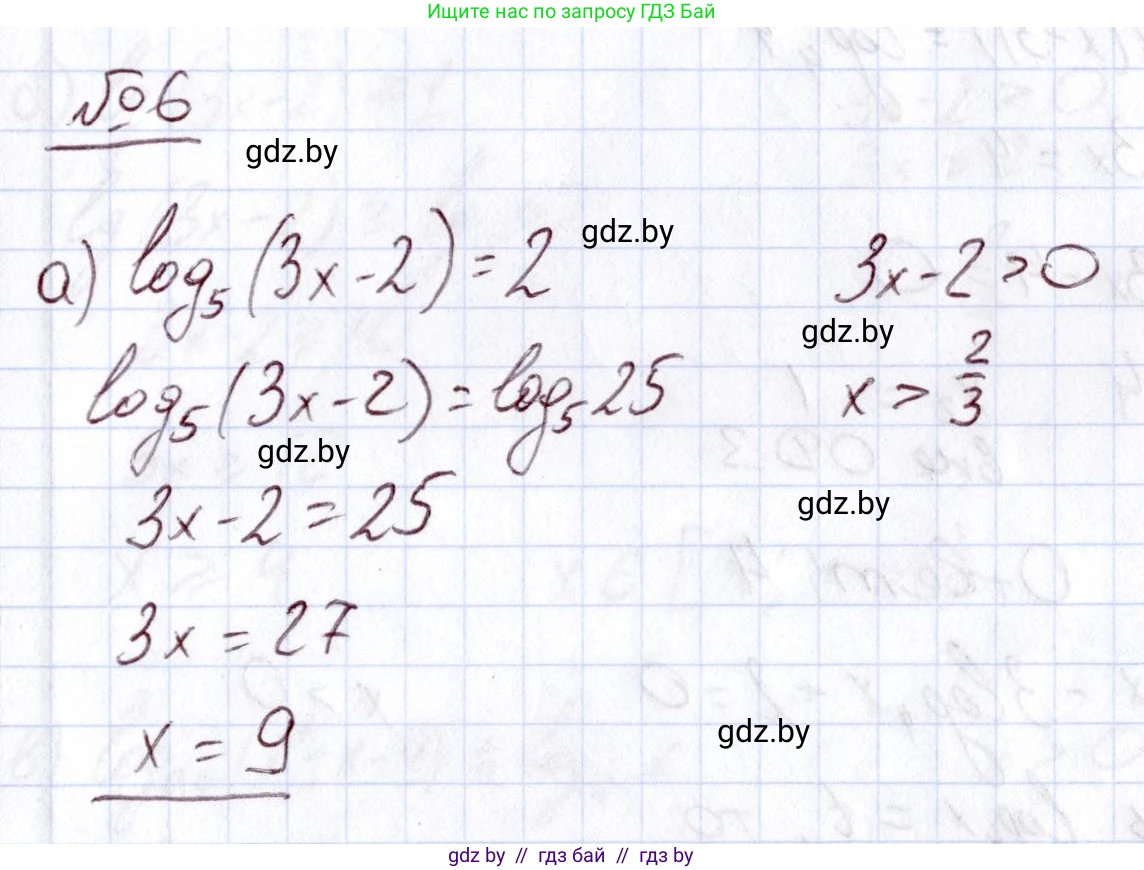 Ищите нас по запросу ГДЗ Бай
№6
gdz.by
а) log₅(3x-2)=2
gdz.by
3x-2>0
gdz.by
log₅(3x-2)=log₅25
x > 2/3
gdz.by
3x-2=25
gdz.by
3x=27
x=9
gdz.by
gdz by // гдз бай // гдз by